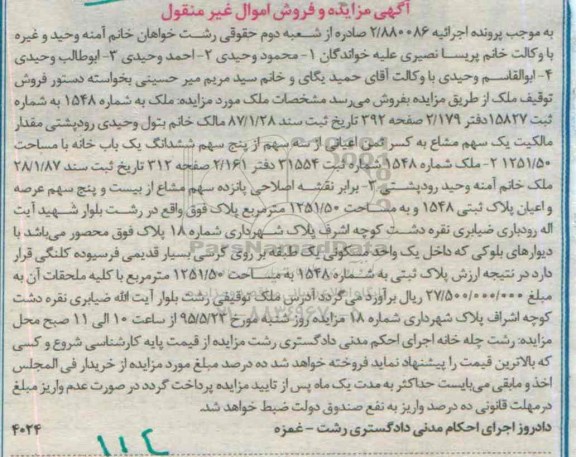 آگهی مزایده و فروش اموال غیر منقول
به موجب پرونده اجرائیه ۲/۸۸۰۰۸۶ صادره از شعبه دوم حقوقی رشت خواهان خانم آمنه وحید و غیره
با وکالت خانم پریسا نصیری علیه خواندگان ۱- محمود وحیدی ۲- احمد وحیدی ۳- ابوطالب وحیدی
۴- ابوالقاسم وحیدی با وکالت آقای حمید یگای و خانم سید مریم میر حسینی بخواسته دستور فروش
توقیف ملک از طریق مزایده بفروش می‌رسد مشخصات ملک مورد مزایده: ملک به شماره ۱۵۴۸ به شماره
ثبت ۱۵۸۲۷دفتر ۲/۱۷۹ صفحه ۳۹۲ تاریخ ثبت سند ۸۷/۱/۲۸ مالک خانم بتول وحیدی رودپشتی مقدار
مالکیت یک سهم مشاع به کسر ثمن اعیانی از سه سهم از پنج سهم ششدانگ یک باب خانه با مساحت
۱۲۵۱/۵۰ ۲- ملک شماره ۱۵۴۸ شماره ثبت ۳۱۵۵۴ دفتر ۲/۱۶۱ صفحه ۳۱۲ تاریخ ثبت سند ۲۸/۱/۸۷
ملک خانم آمنه وحید رودپشتی ۳- برابر نقشه اصلاحی پانزده سهم مشاع از بیست و پنج سهم عرصه
و اعیان پلاک ثبتی ۱۵۴۸ و به مساحت ۱۲۵۱/۵۰ مترمربع پلاک فوق واقع در رشت بلوار شهید آیت
اله رودباری ضیابری نقره دشت کوچه اشرف پلاک شهرداری شماره ۱۸ پلاک فوق محصور می‌باشد با
دیوارهای بلوکی که داخل یک واحد مسکونی یک طبقه بر روی کرسی بسیار قدیمی فرسوده کلنگی قرار
دارد در نتیجه ارزش پلاک ثبتی به شماره ۱۵۴۸ به مساحت ۱۲۵۱/۵۰ مترمربع با کلیه ملحقات آن به
مبلغ ۲۷/۵۰۰/۰۰۰/۰۰۰ ریال برآورد می گردد آدرس ملک توقیفی رشت بلوار آیت الله ضیابری نقره دشت
کوچه اشراف پلاک شهرداری شماره ۱۸ مزایده روز شنبه مورخ ۹۵/۵/۲۳ از ساعت ۱۰ الی ۱۱ صبح محل
مزایده: رشت چله خانه اجرای احکم مدنی دادگستری رشت مزایده از قیمت پایه کارشناسی شروع و کسی
که بالاترین قیمت را پیشنهاد نماید فروخته خواهد شد ده درصد مبلغ مورد مزایده از خریدار فی المجلس
اخذ و مابقی می‌بایست حداکثر به مدت یک ماه پس از تایید مزایده پرداخت گردد در صورت عدم واریز مبلغ
در مهلت قانونی ده درصد واریز به نفع صندوق دولت ضبط خواهد شد.
دادروز اجرای احکام مدنی دادگستری رشت – غمزه
۴۰۲۴